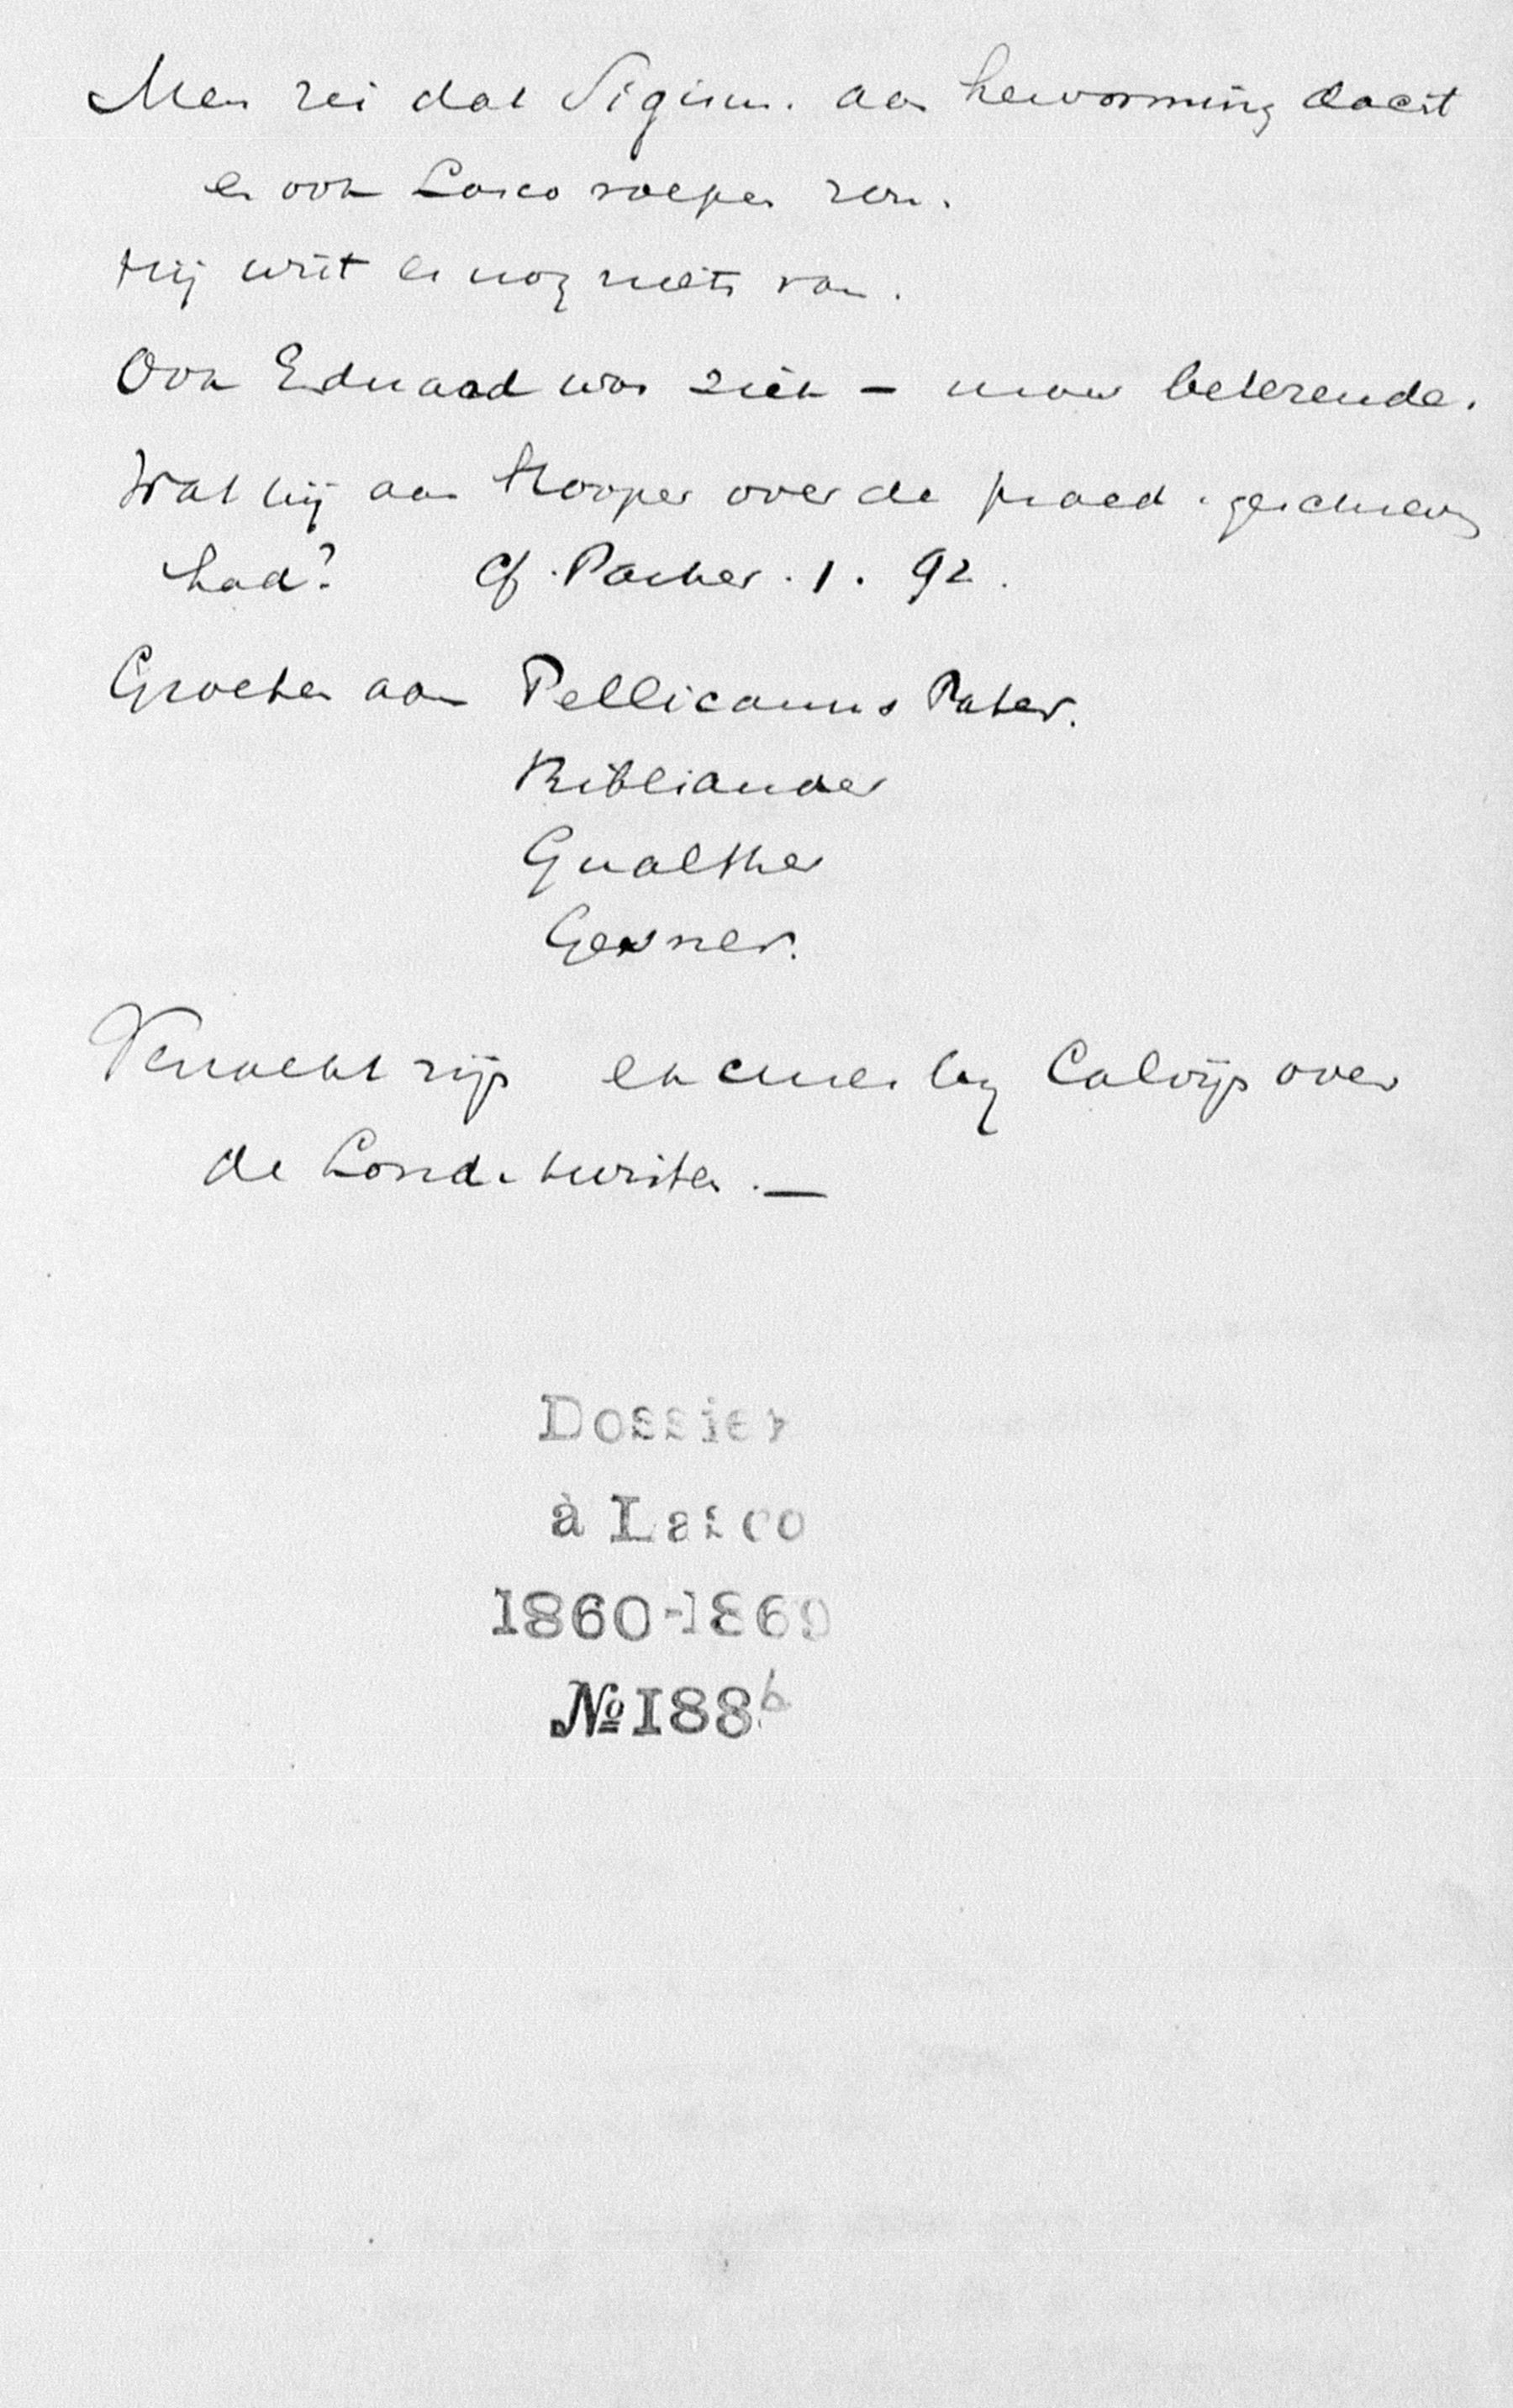 Men zei dat Sigism. aan hervorming dacht
en ook Lasco roepen zou.
Hij wist er nog niets van.
Ook Eduard was ziek – maar beterende.
Wat hij aan Hooper over de praed. geschreven
had? Cf. Pacher. 1. 92.
Groeten aan Pellicanus Pater.
Bibliander
Gualther
Gesner.
Verwacht zijn en by Calvijn over
de Lond. twisten. —
Dossier
à Lasco
1860-1869
№ 188b